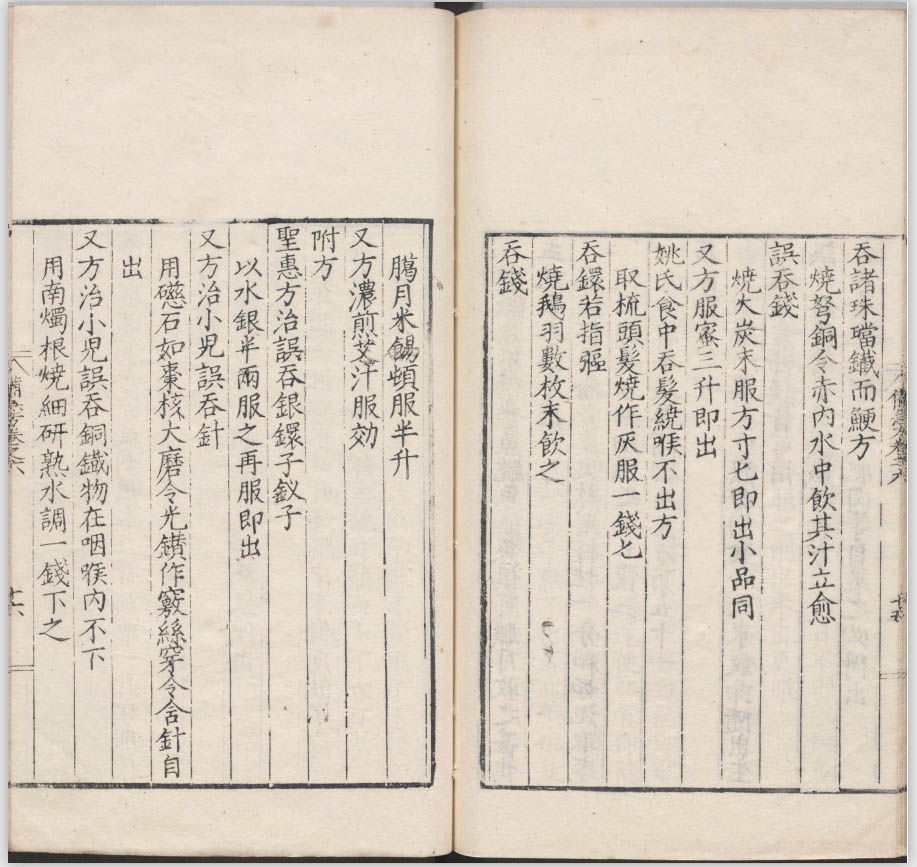 吞諸珠璫鐵而鯁方
燒弩銅令赤內水中飲其汁立愈
誤吞錢
燒火炭末服方寸匕即出小品同
又方服蜜三升即出
姚氏食中吞髮繞喉不出方
取梳頭髮燒作灰服一錢匕
吞鐶若指彄
燒鵝羽數枚末飲之
吞錢
臈月米餳頓服半升
又方濃煎艾汁服効
附方
聖惠方治誤吞銀鐶子釵子
以水銀半兩服之再服即出
又方治小兒誤吞針
用礠石如棗核大磨令光鑚作竅絲穿令含針自
出
又方治小兒誤吞銅鐵物在咽喉內不下
用南燭根燒細研熟水調一錢下之
十六